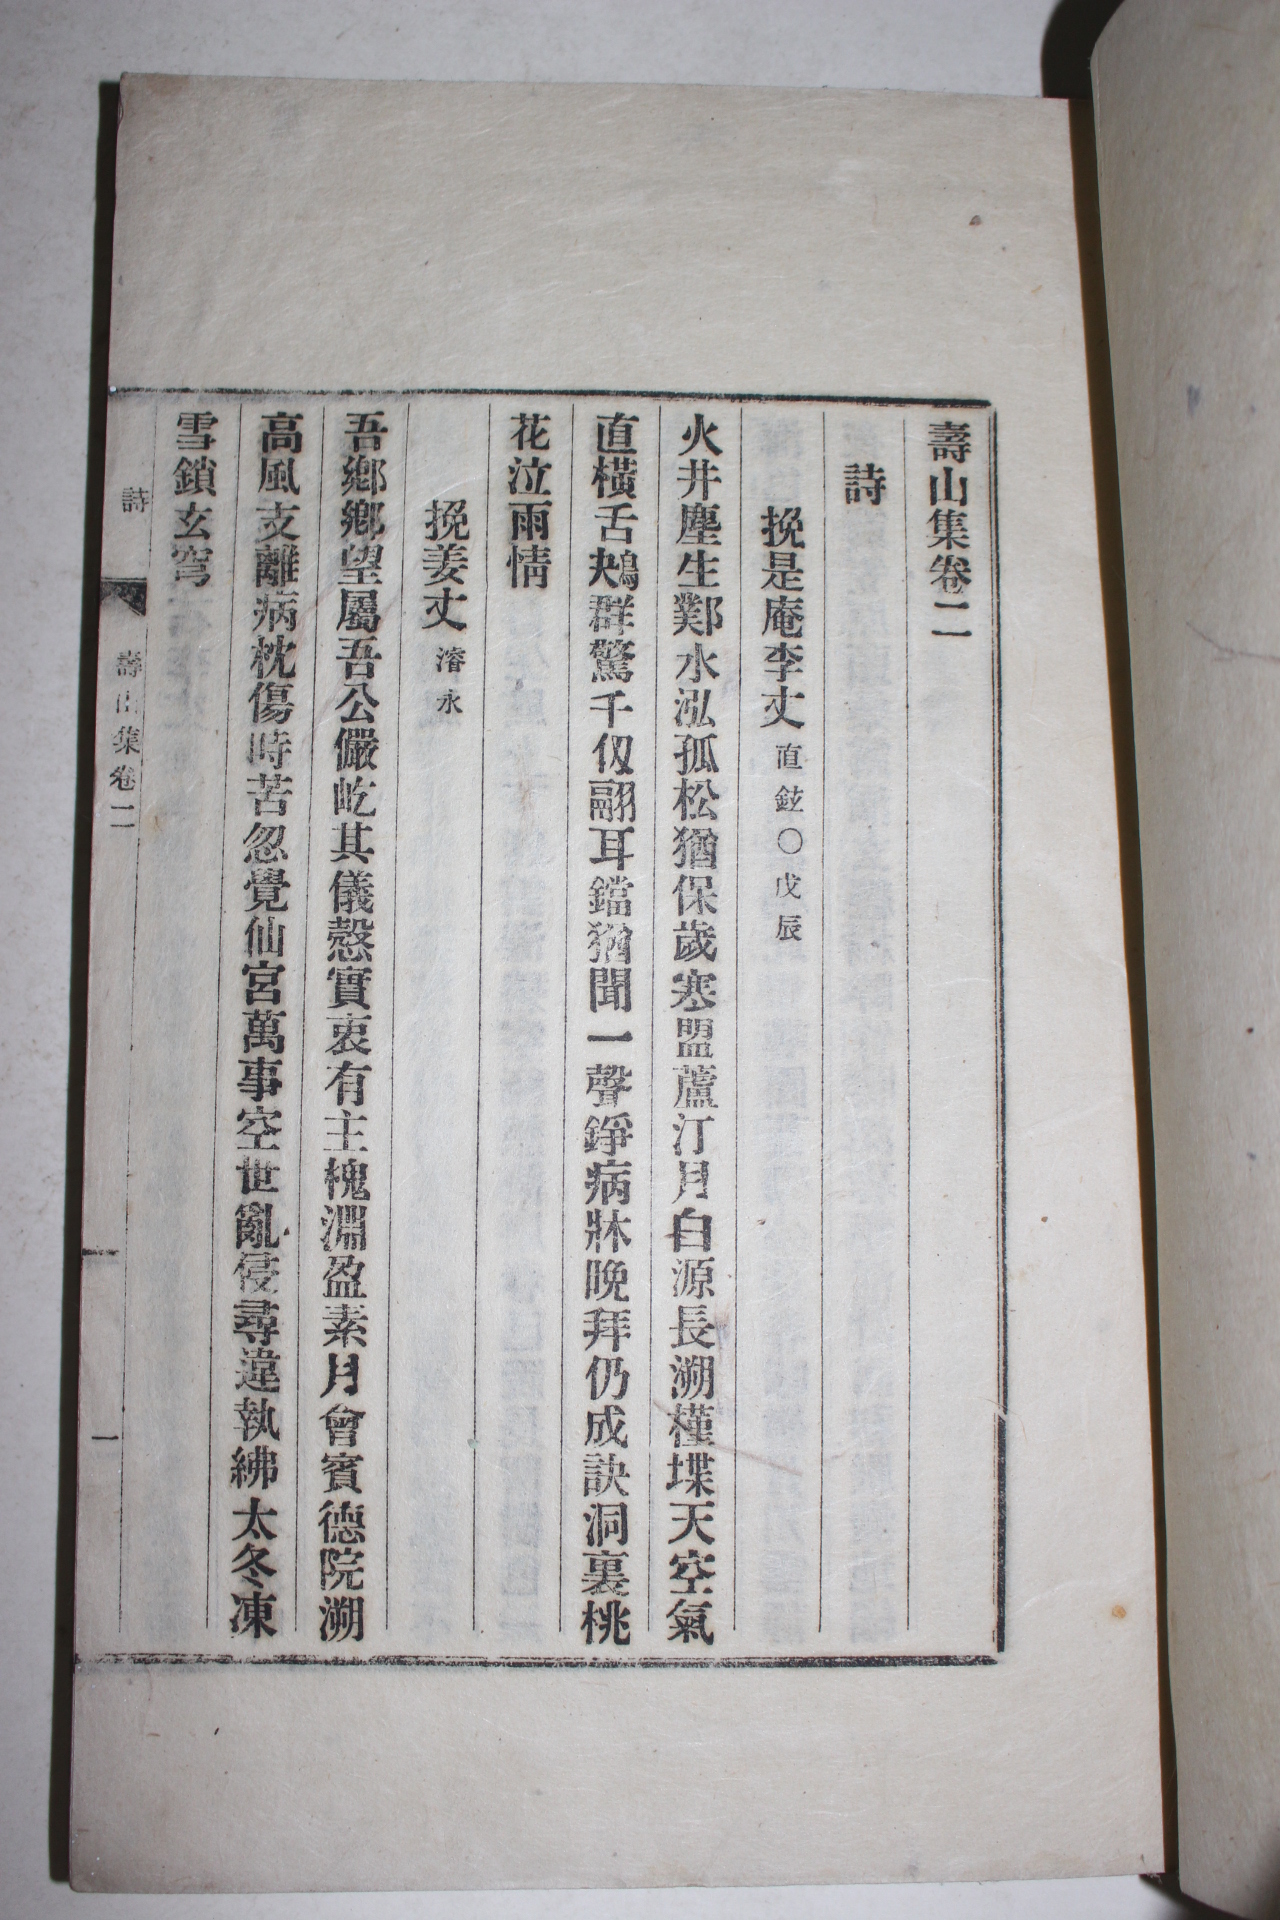 壽山集卷二
詩
挽是庵李丈 直鉉〇戊辰
火井塵生鄴水泓孤松猶保歲寒盟蘆汀月白源長溯槿堞天空氣
直橫舌鴂群驚千仭翮耳鐺猶聞一聲錚病牀晚拜仍成訣洞裏桃
花泣雨情
挽姜丈 濬永
吾鄉鄉望屬吾公儼屹其儀愨實衷有主槐淵盈素月會賓德院溯
高風支離病枕傷時苦忽覺仙宮萬事空世亂侵尋違執紼太冬凍
雪鎖玄穹
詩
壽山集卷二
一